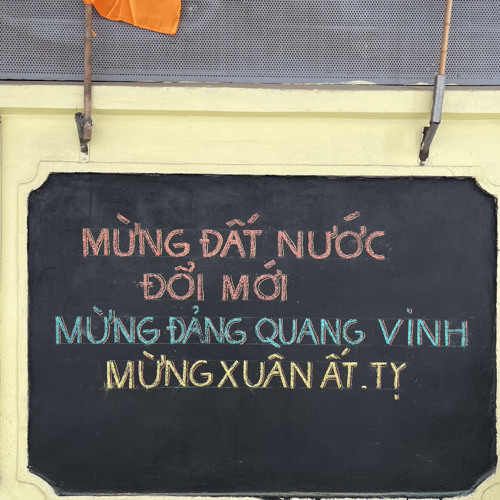 MỪNG ĐẤT NƯỚC
ĐỔI MỚI
MỪNG ĐẢNG QUANG VINH
MỪNG XUÂN ẤT.TỴ